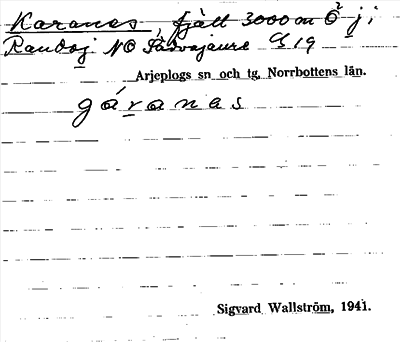 Karanes, fjäll 3000 m Ö j;
Randoj NO Sädvajaure GS 19
Arjeplogs sn och tg, Norrbottens län.
gáranas
Sigvard Wallström, 1941.